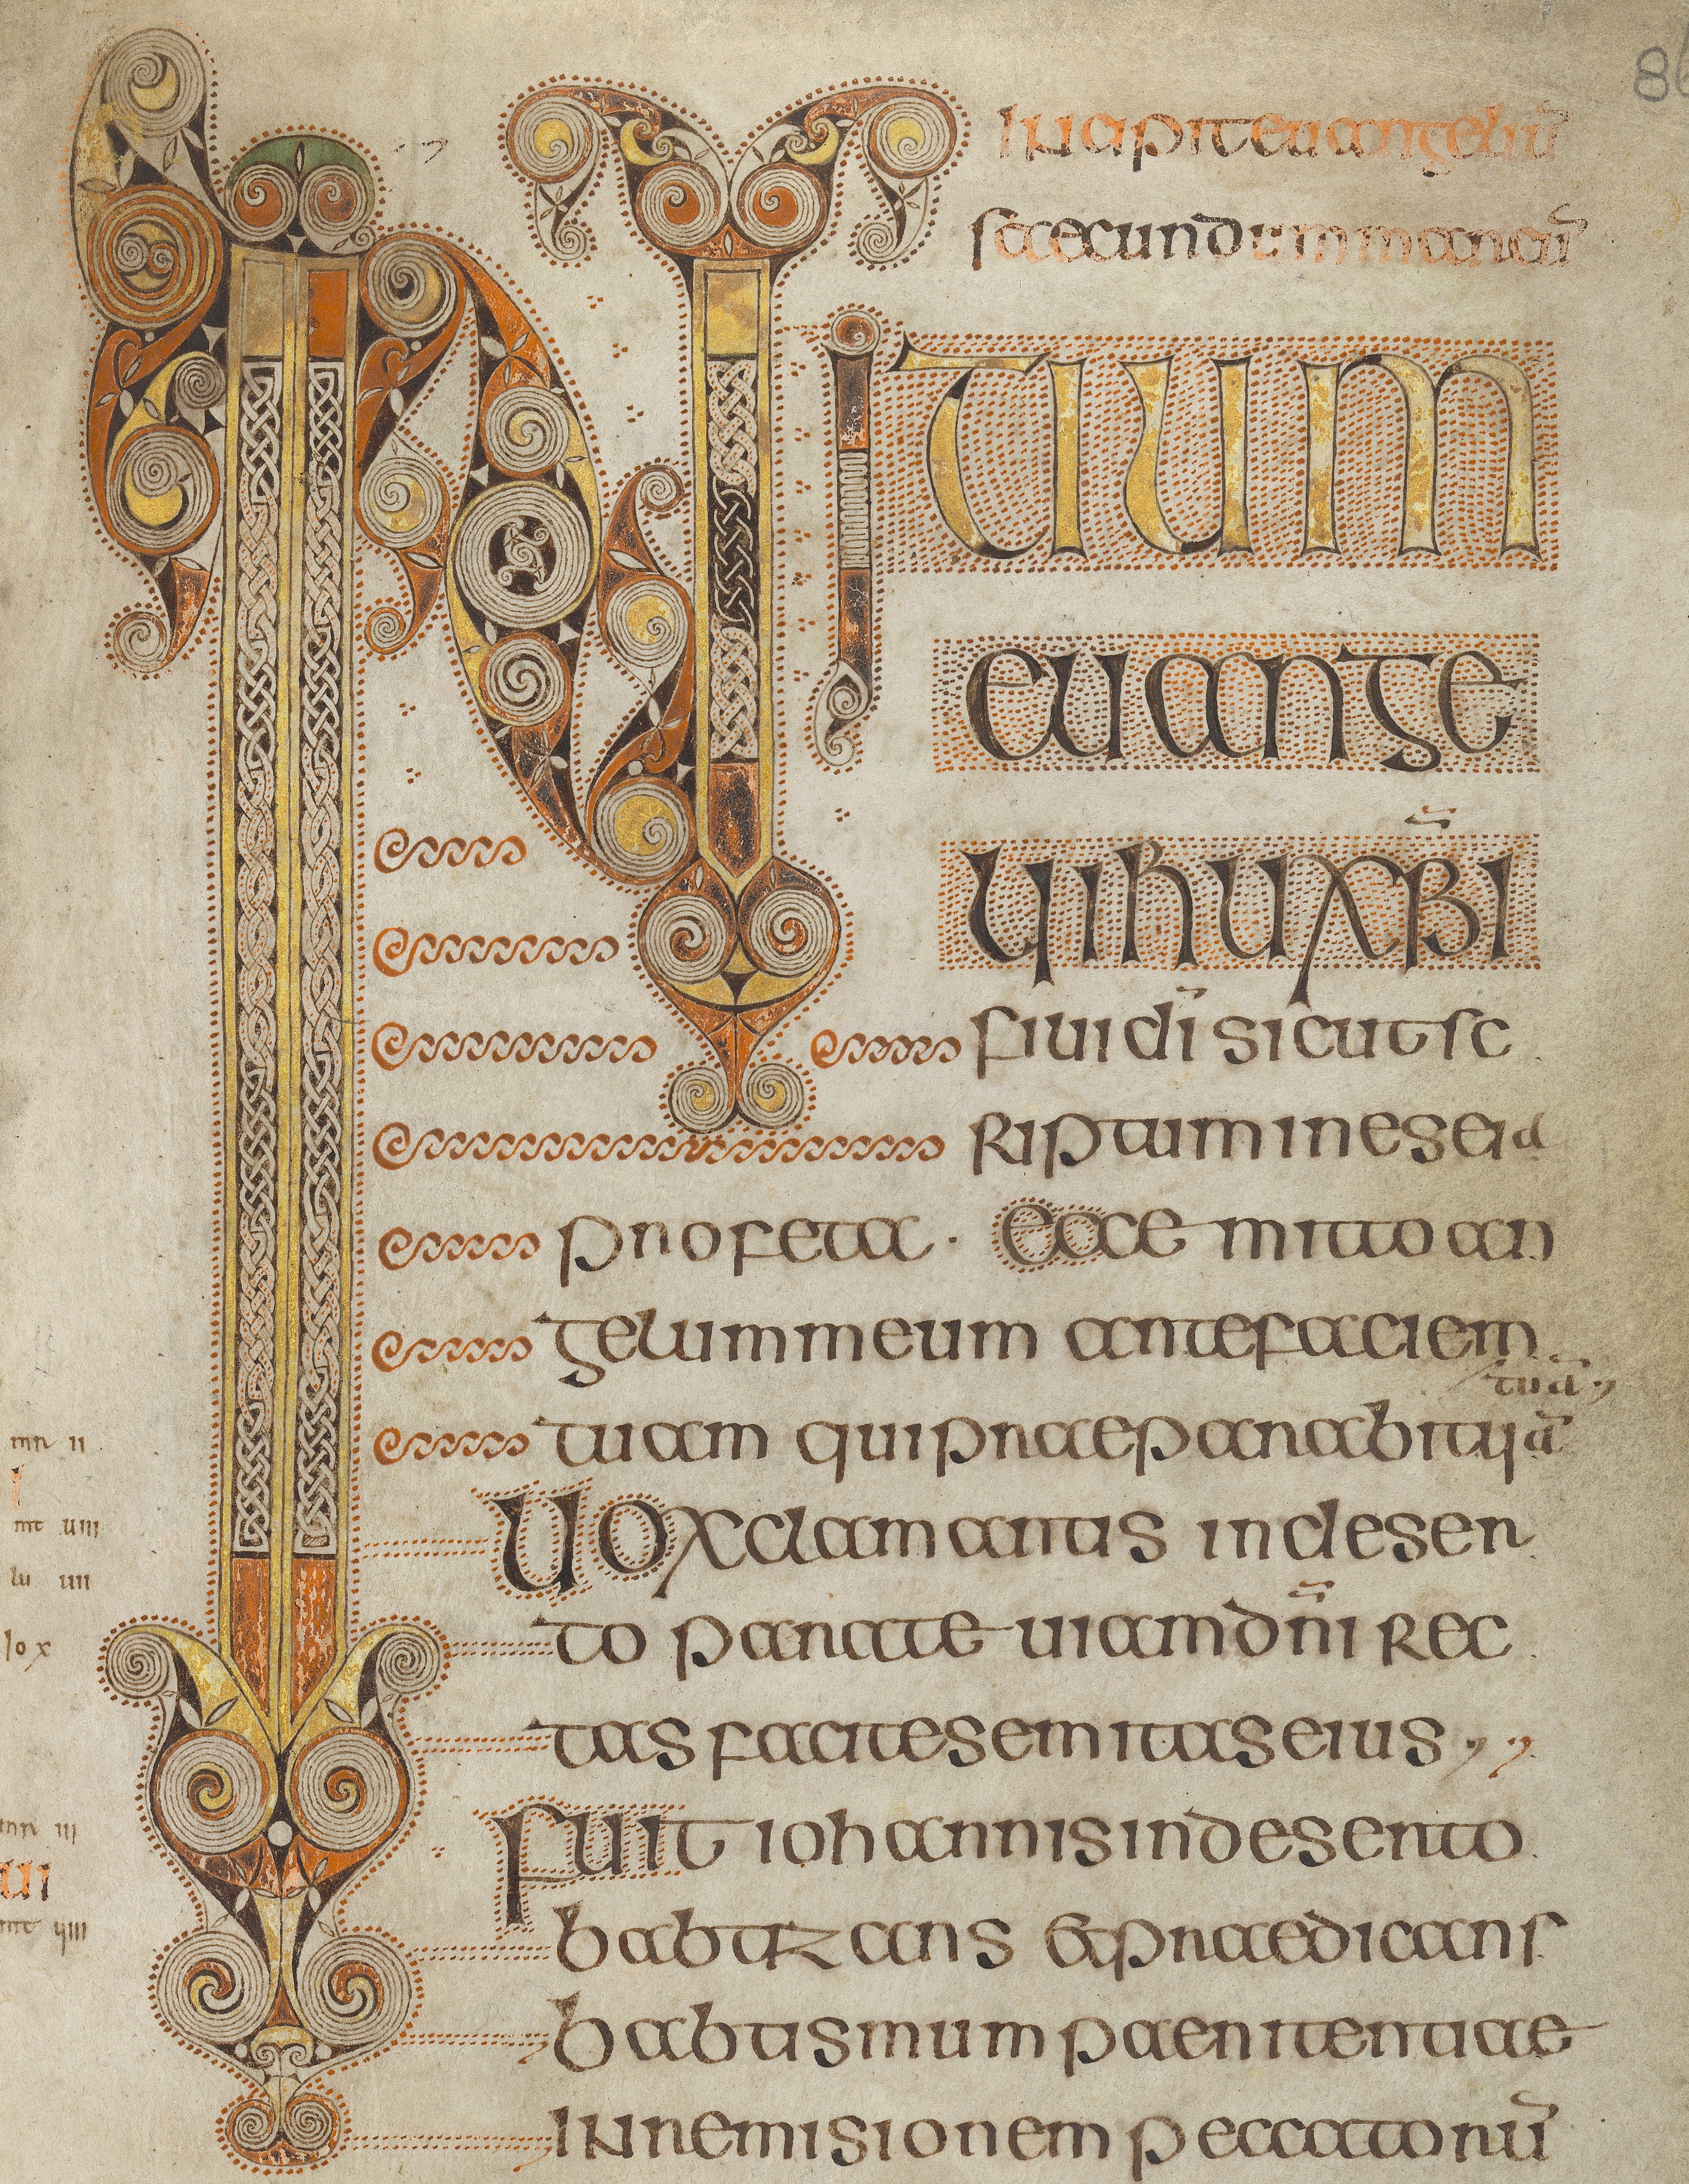 86
Incipit euangeliū
secundum marcū
INITIUM
euange
lii ihu xp̄i
fili di sicut sc
riptum in eseia
profeta · Ecce mitto an
gelum meum ante faciem
tuā
tuam qui praeparabit uiā
Uox clamantis in deser
to parate uiam dn̄i rec
tas facite semitas eius ,,
Fuit iohannis in deserto
babtizans et praedicans
babtismum paenitentiae
in remisionem peccatorū
mr ii
I
mt uiii
lu iiii
io x
mr iii
UI